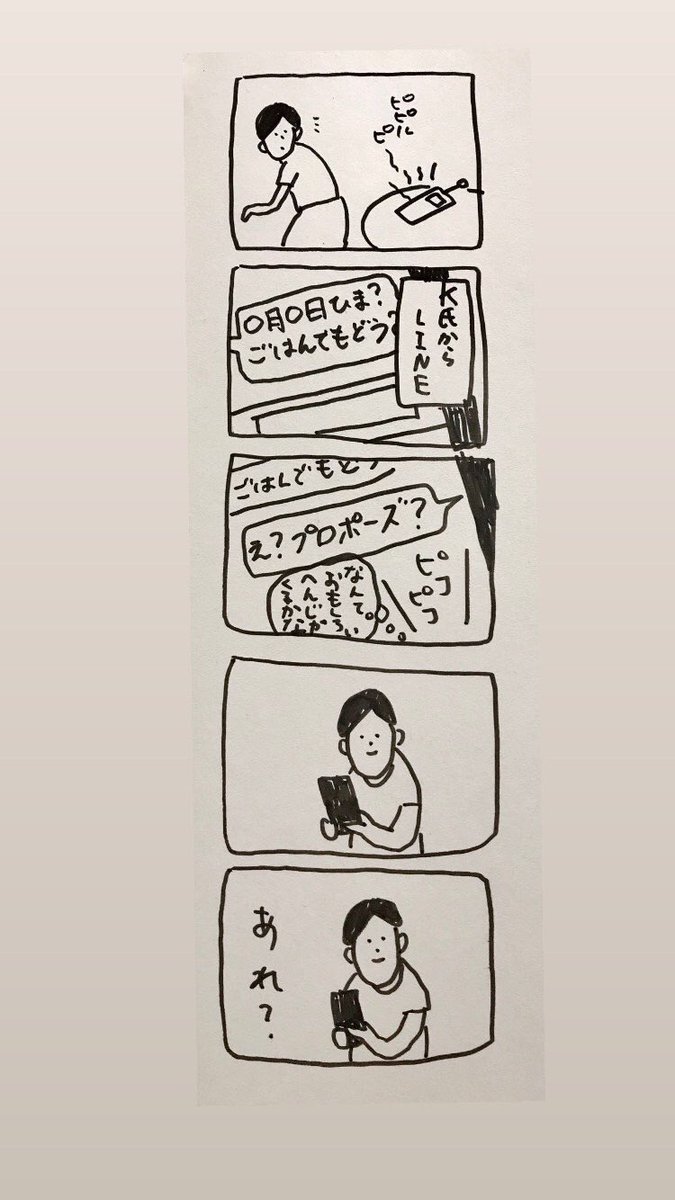 ピピルピ
K氏から
LINE
〇月〇日ひま？
ごはんでもどう？
ごはんでもどう
え？プロポーズ？
ピコピコ
なんて。
おもしろい
へんじが
くるかな
あれ？